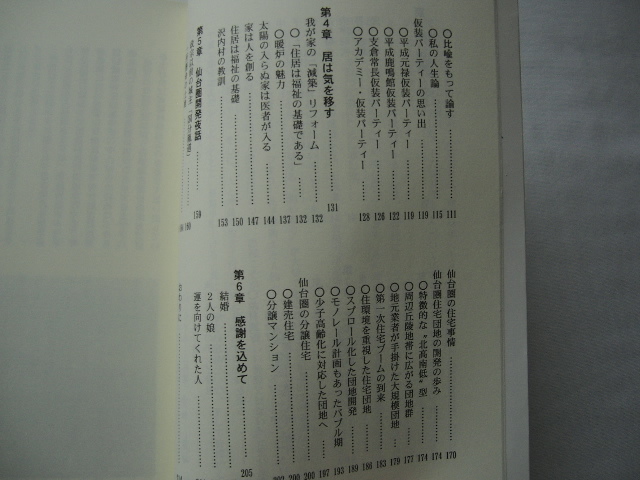 ○比喩をもって論す……111
○私の人生論……115
仮装パーティーの思い出……119
○平成元禄仮装パーティー……119
○平成鹿鳴館仮装パーティー……122
○支倉常長仮装パーティー……126
○アカデミー・仮装パーティー……128
第4章 居は気を移す……131
我が家の「減築」リフォーム……132
○「住居は福祉の基礎である」……132
○暖炉の魅力……137
太陽の入らぬ家は医者が入る……144
家は人を創る……147
住居は福祉の基礎……150
沢内村の教訓……153
第5章 仙台圏開発夜話……159
160
仙台圏の住宅事情……170
仙台圏住宅団地の開発の歩み……174
○特徴的な“北高南低”型……174
○周辺丘陵地帯に広がる団地群……177
○地元業者が手掛けた大規模団地……179
○第一次住宅ブームの到来……183
○住環境を重視した住宅団地……186
○スプロール化した団地開発……189
○モノレール計画もあったバブル期……193
○少子高齢化に対応した団地へ……197
仙台圏の分譲住宅……200
○建売住宅……200
○分譲マンション……202
第6章 感謝を込めて……205
結婚
2人の娘
運を向けてくれた人